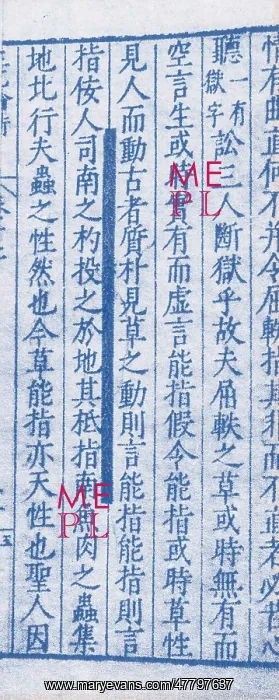 聽一有獄字訟三人斷獄乎故夫屈軼之草或時無有而
空言生或時實有而虛言能指假令能指或時草性
見人而動古者質朴見草之動則言能指能指則言
指佞人司南之杓投之於地其柢指南魚肉之蟲集
地比行夫蟲之性然也今草能指亦天性也聖人因
ME
PL
ME
PL
www.maryevans.com/47797697